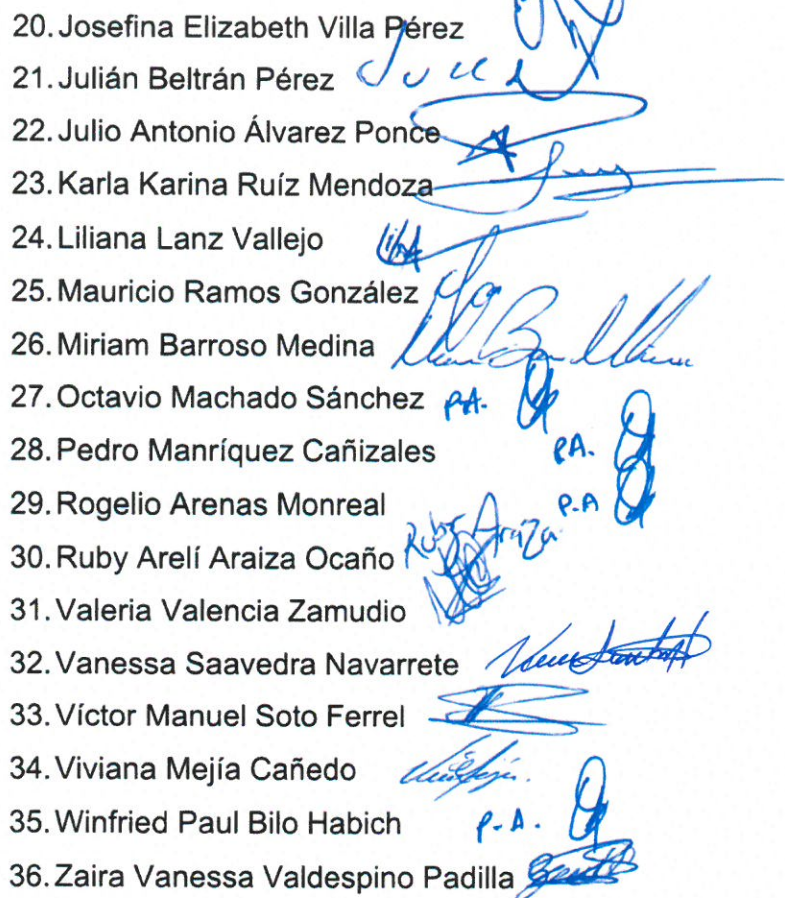 20. Josefina Elizabeth Villa Pérez
21. Julián Beltrán Pérez
22. Julio Antonio Álvarez Ponce
23. Karla Karina Ruíz Mendoza
24. Liliana Lanz Vallejo
25. Mauricio Ramos González
26. Miriam Barroso Medina
27. Octavio Machado Sánchez P.A.
28. Pedro Manríquez Cañizales P.A.
29. Rogelio Arenas Monreal P.A
30. Ruby Arelí Araiza Ocaño Ruby Araiza
31. Valeria Valencia Zamudio
32. Vanessa Saavedra Navarrete
33. Víctor Manuel Soto Ferrel
34. Viviana Mejía Cañedo
35. Winfried Paul Bilo Habich P.A.
36. Zaira Vanessa Valdespino Padilla